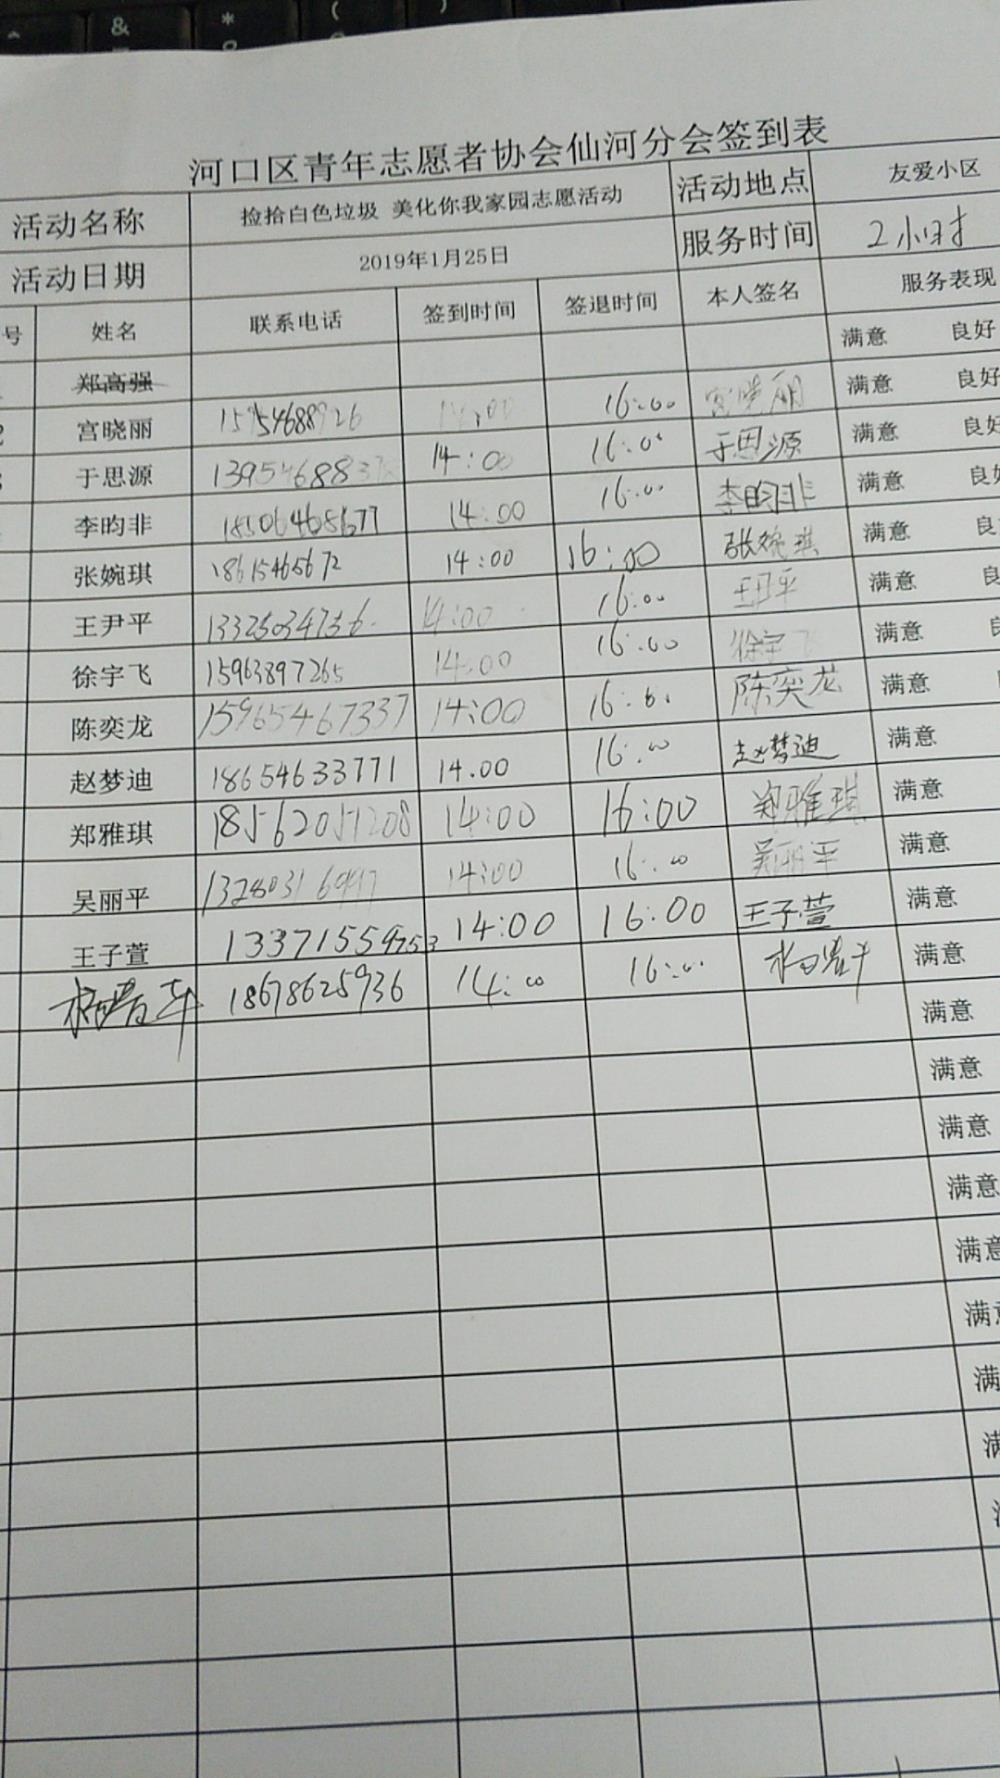 河口区青年志愿者协会仙河分会签到表
活动名称 捡拾白色垃圾 美化你我家园志愿活动 活动地点 友爱小区
活动日期 2019年1月25日 服务时间 2小时
号 姓名 联系电话 签到时间 签退时间 本人签名 服务表现
郑高强 满意 良好
宫晓丽 15954688926 14:00 16:00 宫晓丽 满意 良好
于思源 13954688 14:00 16:00 于思源 满意 良好
李昀非 18506468677 14:00 16:00 李昀非 满意 良好
张婉琪 18615465672 14:00 16:00 张婉琪 满意 良
王尹平 13325034736 14:00 16:00 王尹平 满意 良
徐宇飞 15963897265 14:00 16:00 徐宇飞 满意 良
陈奕龙 15965467337 14:00 16:00 陈奕龙 满意
赵梦迪 18654633771 14.00 16:00 赵梦迪 满意
郑雅琪 18562051208 14:00 16:00 郑雅琪 满意
吴丽平 14:00 16:00 吴丽平 满意
王子萱 13371559753 14:00 16:00 王子萱 满意
18678625936 14:00 16:00 满意
满意
满意
满意
满意
满意
满
满
满